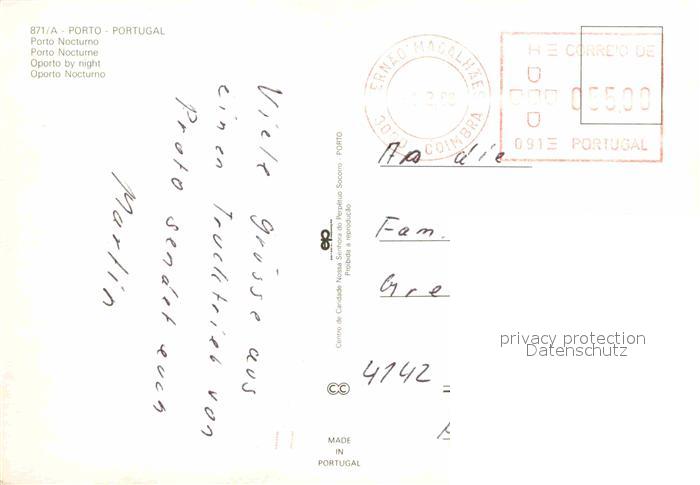 871/A - PORTO - PORTUGAL
Porto Nocturno
Porto Nocturne
Oporto by night
Oporto Nocturno
Viele grüsse aus
einen trucktrieb von
Proto sendet euch
Martin
Centro de Caridade Nossa Senhora do Perpétuo Socorro · PORTO
Proibida a reprodução
MADE
IN
PORTUGAL
FERNÃO MAGALHÃES
COIMBRA
CORREIO DE
PORTUGAL
An die
Fam.
Gre
4142
privacy protection
Datenschutz